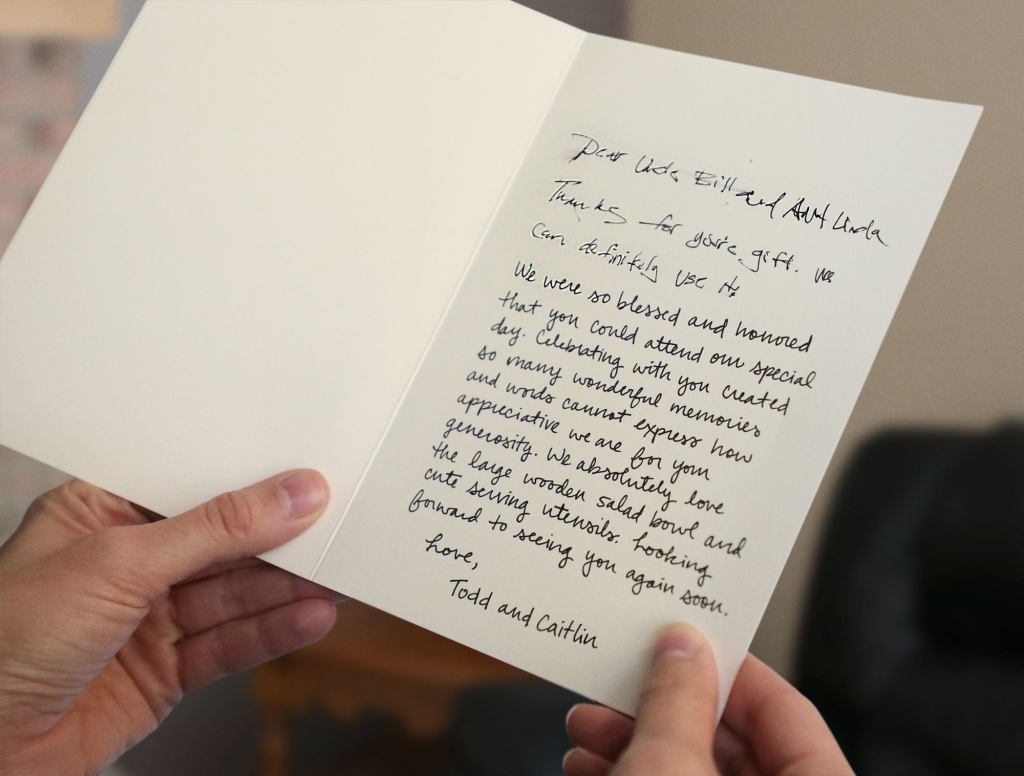 Dear Uncle Bill and Aunt Linda
Thanks for your gift. We
Can definitely use it.
We were so blessed and honored
that you could attend our special
day. Celebrating with you created
so many wonderful memories
and words cannot express how
appreciative we are for your
generosity. We absolutely love
the large wooden salad bowl and
cute serving utensils. Looking
forward to seeing you again soon.
Love,
Todd and Caitlin